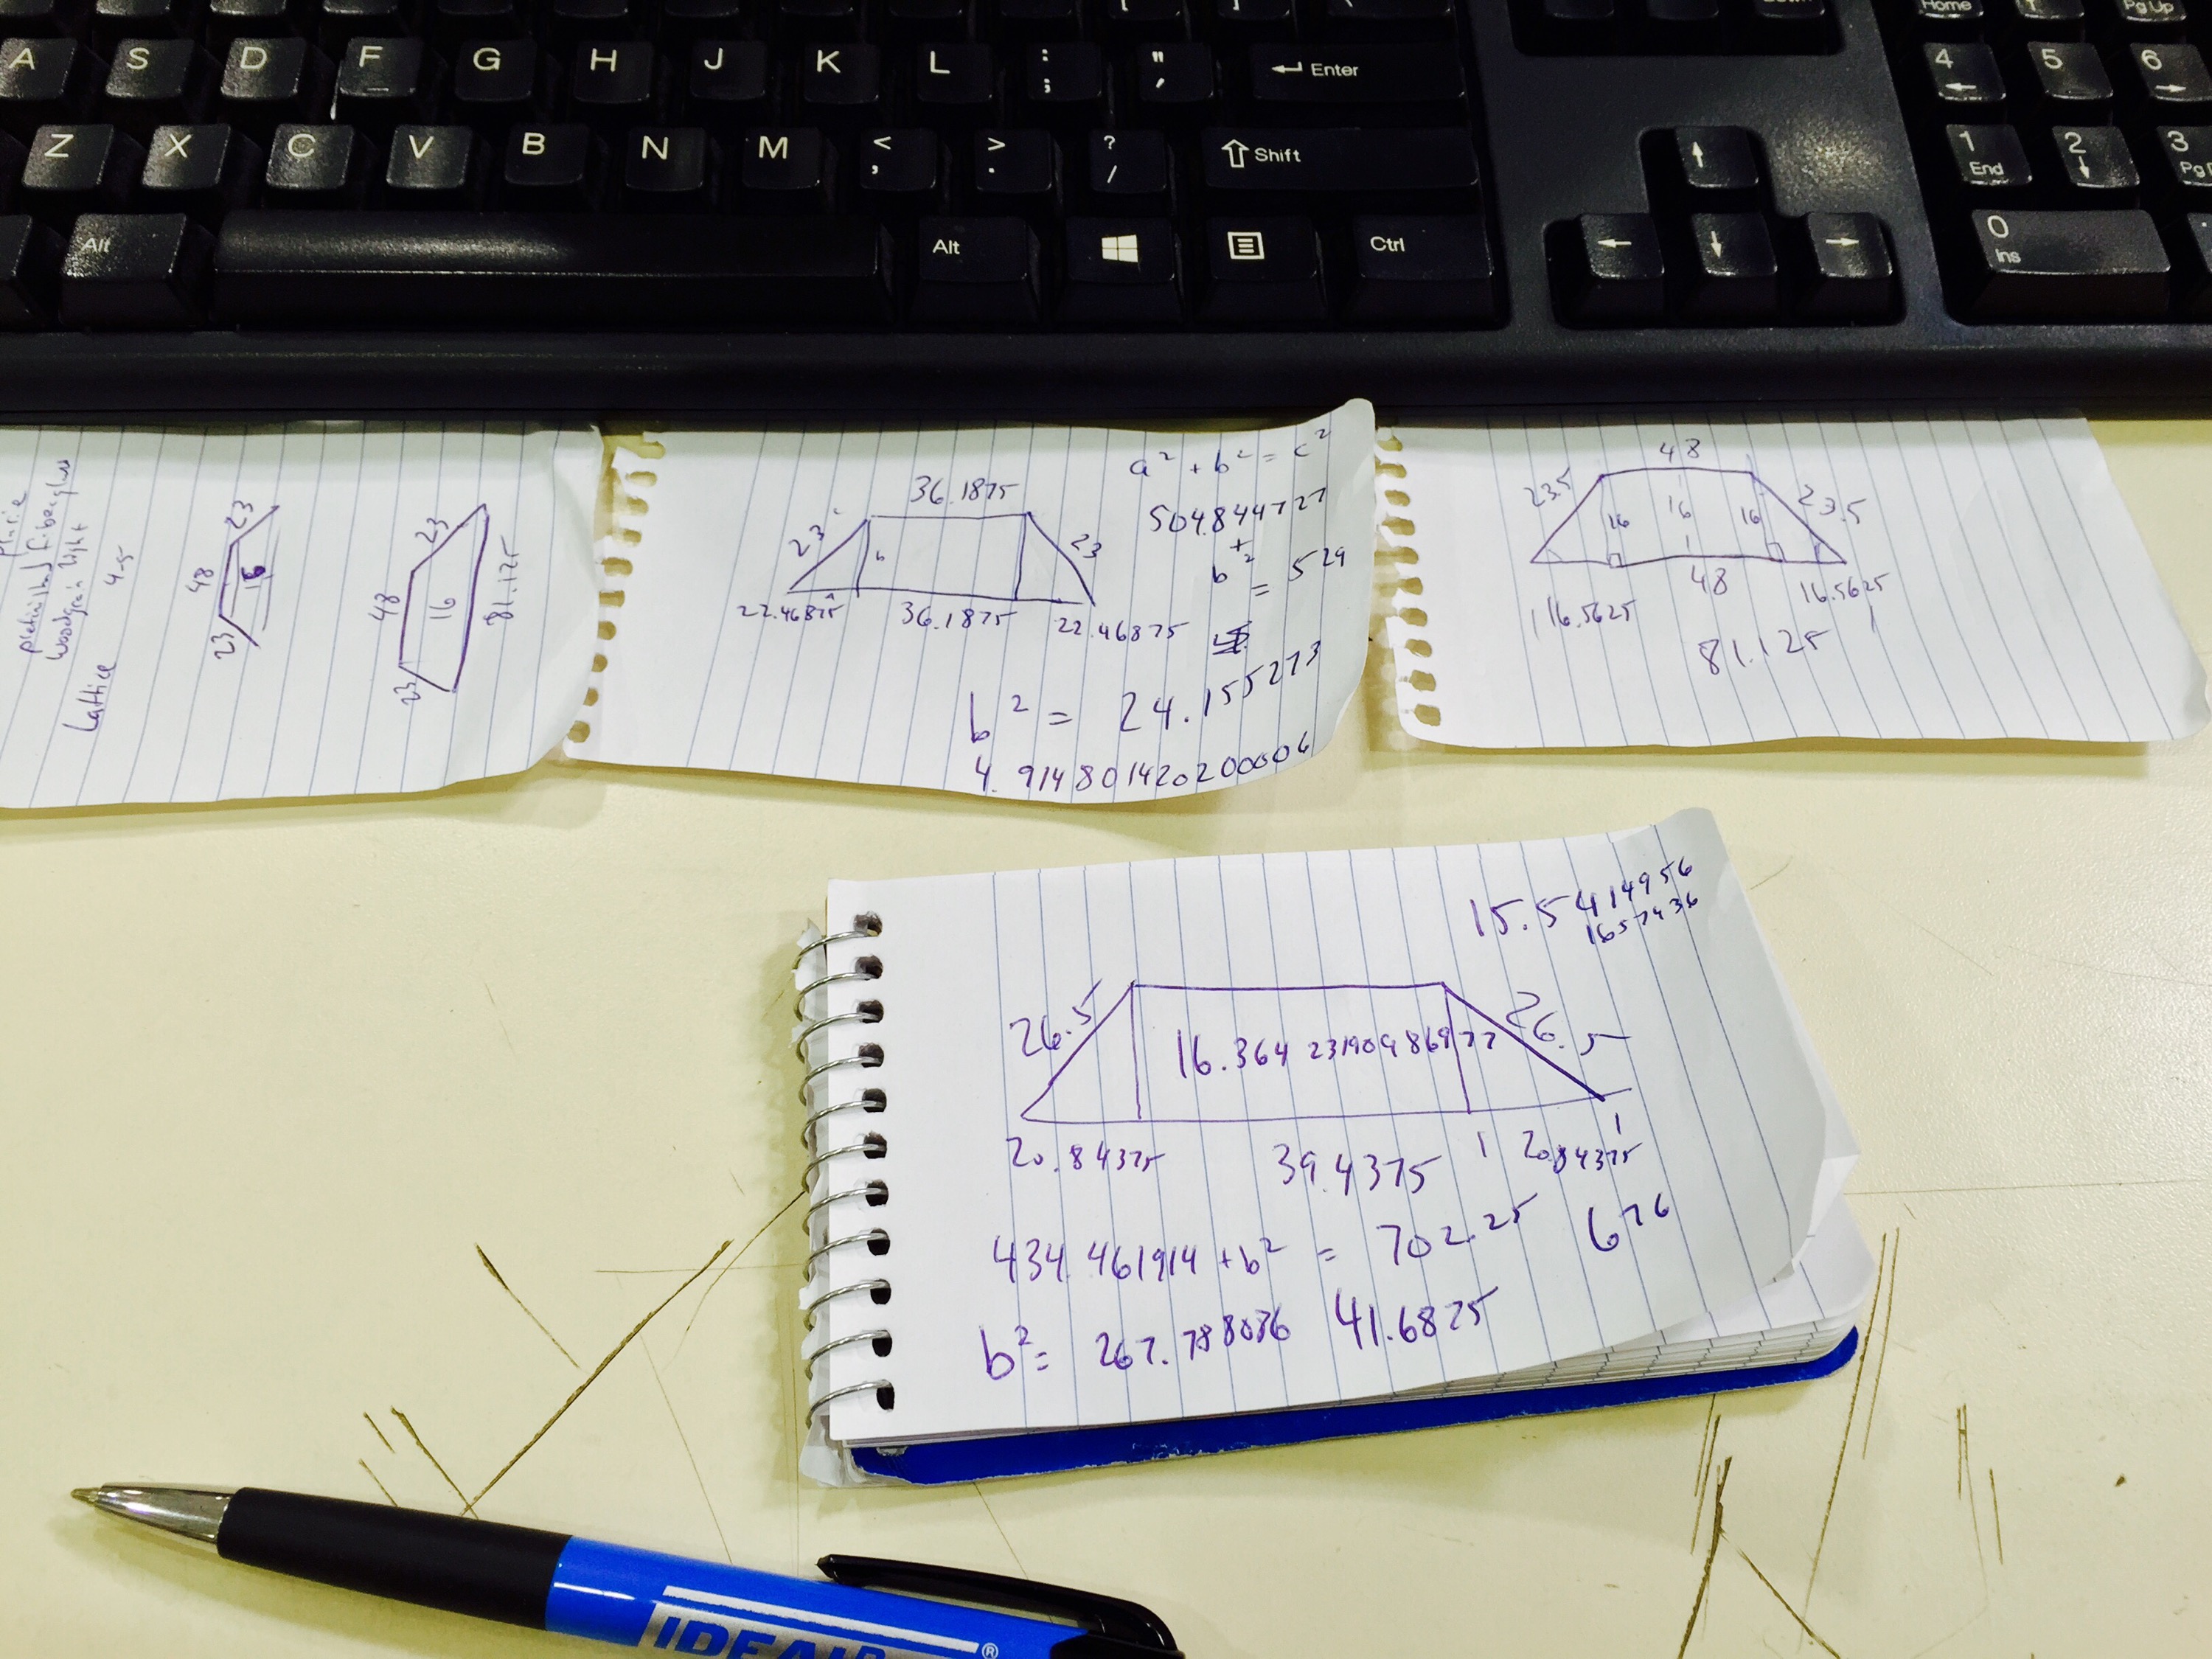 A S D F G H J K L : ; " ' Enter
4 5 6
Home
Pg Up
Z X C V B N M < , > . ? / Shift
1 End 2 3
Alt Alt Ctrl
0 Ins
pictured fiberglass
woodgrain light
Lattice 4-5
23
48 16
23
23
48 16 81.125
23
a² + b² = c²
36.1875
504.844727
23 b 23
+
b² = 529
22.46875 36.1875 22.46875
b² = 24.155273
4.9148014202000006
48
23.5 16 16 16 23.5
48
16.5625 16.5625
81.125
15.5414956
1657436
26.5 26.5
16.36423190986977
20.84375 39.4375 20.84375
434.461914 + b² = 702.25 676
b² = 267.788086 41.6875
IDEAL
®